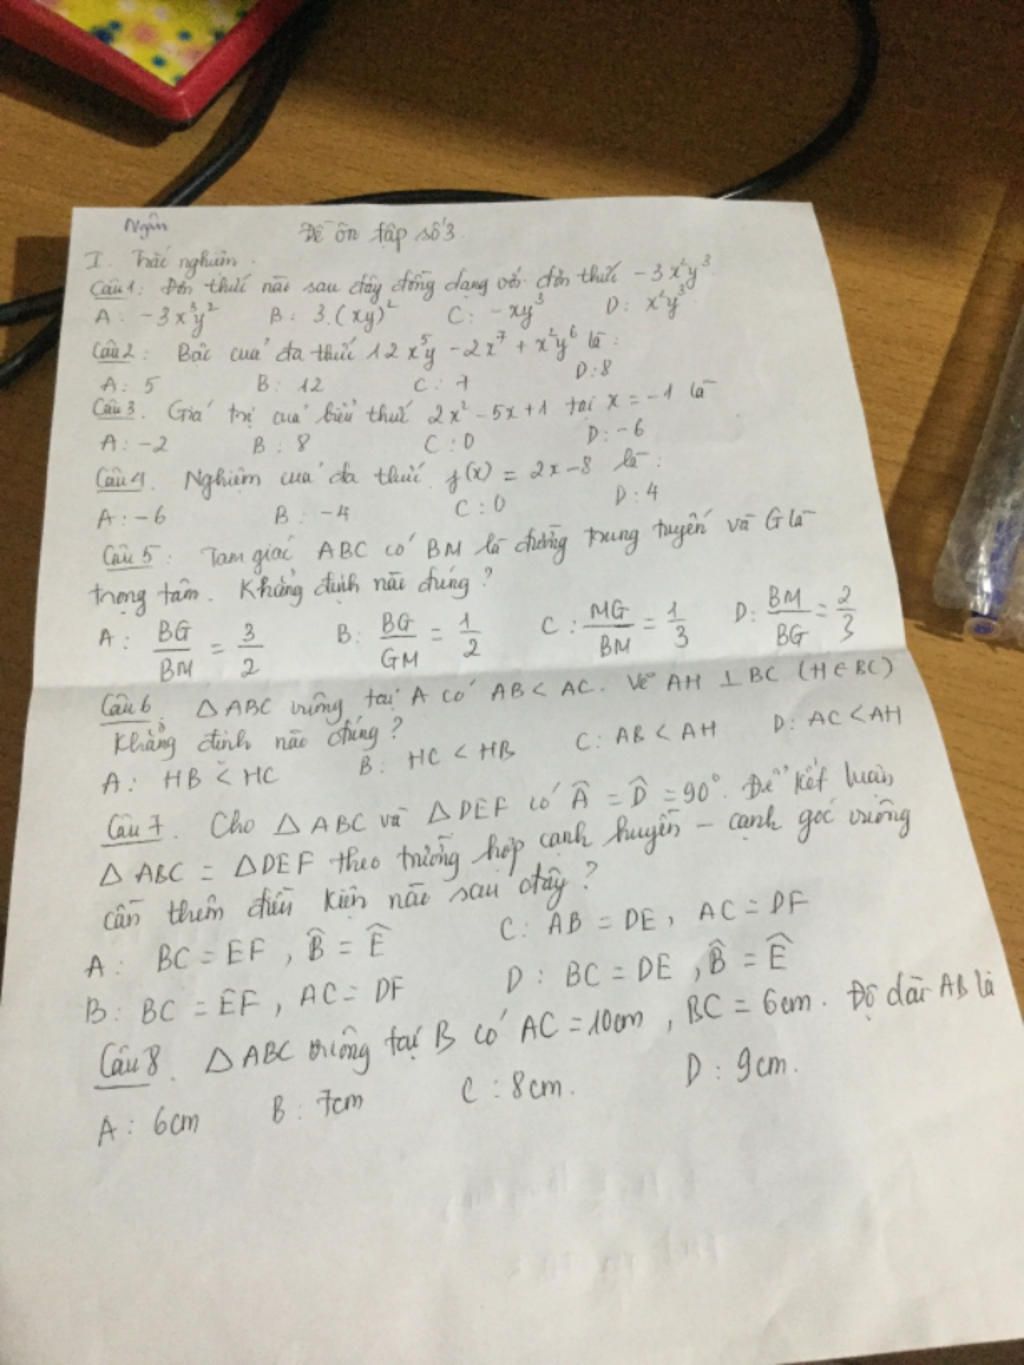 Ngân
Đề ôn tập số 3
I. Trắc nghiệm.
Câu 1: Đơn thức nào sau đây đồng dạng với đơn thức -3x²y³
A: -3x³y² B: 3.(xy)² C: -xy³ D: x²y³
Câu 2: Bậc của đa thức 12x⁵y - 2x⁷ + x²y⁶ là:
A: 5 B: 12 C: 7 D: 8
Câu 3. Giá trị của biểu thức 2x² - 5x + 1 tại x = -1 là
A: -2 B: 8 C: 0 D: -6
Câu 4. Nghiệm của đa thức f(x) = 2x - 8 là:
A: -6 B: -4 C: 0 D: 4
Câu 5: Tam giác ABC có BM là đường trung tuyến và G là
trọng tâm. Khẳng định nào đúng?
A: BG/BM = 3/2 B: BG/GM = 1/2 C: MG/BM = 1/3 D: BM/BG = 2/3
Câu 6. △ABC vuông tại A có AB < AC. Vẽ AH ⊥ BC (H ∈ BC)
Khẳng định nào đúng?
A: HB < HC B: HC < HB C: AB < AH D: AC < AH
Câu 7. Cho △ABC và △DEF có Â = D̂ = 90°. Để kết luận
△ABC = △DEF theo trường hợp cạnh huyền - cạnh góc vuông
cần thêm điều kiện nào sau đây?
A: BC = EF, B̂ = Ê C: AB = DE, AC = DF
B: BC = EF, AC = DF D: BC = DE, B̂ = Ê
Câu 8. △ABC vuông tại B có AC = 10cm, BC = 6cm. Độ dài AB là
A: 6cm B: 7cm C: 8cm. D: 9cm.